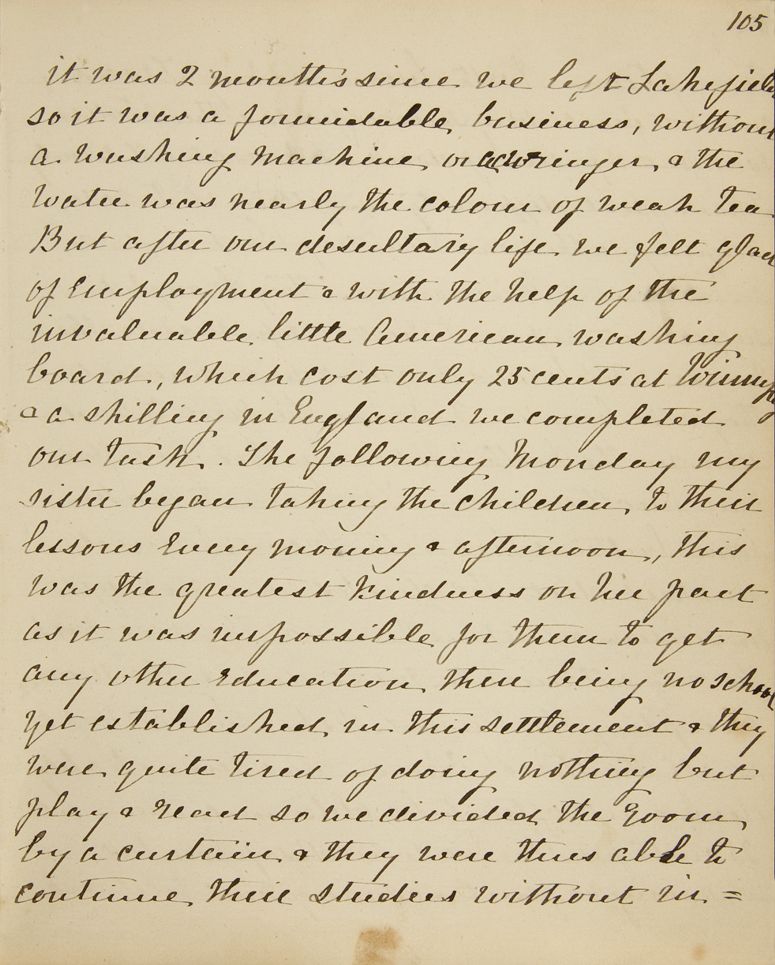 105
it was 2 months since we left Lakefield
so it was a formidable business, without
a washing machine or a wringer, & the
water was nearly the colour of weak tea
But after our desultary life we felt glad
of employment & with the help of the
invaluable little American washing
board, which cost only 25 cents at Winnipeg
& a shilling in England we completed
our task. The following Monday my
sister began taking the children to their
lessons every morning & afternoon, this
was the greatest kindness on her part
as it was impossible for them to get
any other education there being no school
yet established in this settlement & they
were quite tired of doing nothing but
play & read so we divided the room
by a curtain & they were thus able to
continue their studies without in=